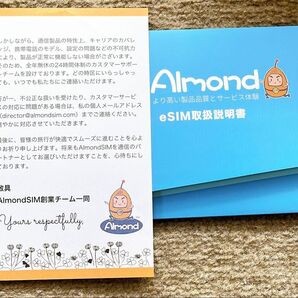 しかしながら、通信製品の特性上、キャリアのカバレ
ンジ、携帯電話のモデル、設定の問題などの不可抗力
により、製品が正常に機能しない場合がございます。
そのため、全年無休の24時間体制のカスタマーサポー
トチームを設けております。どの時区にいらっしゃっ
ても、いつでもお気軽にお問い合わせください。
万が一、不正当な扱いを受けたり、カスタマーサポー
トの対応に問題がある場合は、私の個人メールアドレス
(director@almondsim.com)までご連絡ください。
速やかに対応させていただきます。
最後に、皆様の旅行が快適でスムーズに進むことを心よ
りお祈り申し上げます。将来もAlmondSIMを通信のパ
ートナーとしてお選びいただけますことを、心待ちにし
ております。
敬具
AlmondSIM創業チーム一同
Yours respectfully,
Almond
Almond
より高い製品品質とサービス体験
eSIM取扱説明書